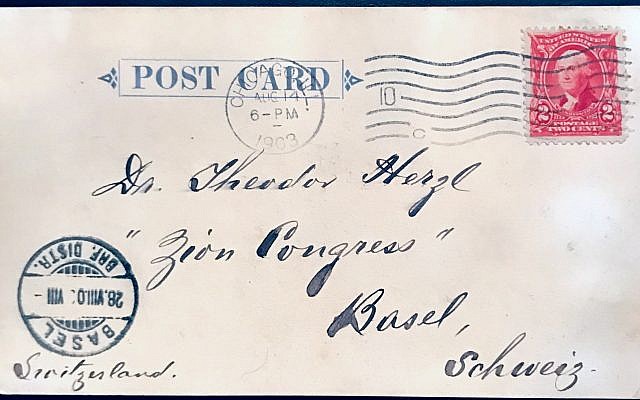 POST CARD
CHICAGO, ILL
AUG 14
6-PM
1903
10
C
UNITED STATES
OF AMERICA
2 2
POSTAGE
TWO CENTS
Dr. Theodor Herzl
"Zion Congress"
Basel,
Schweiz.
Switzerland.
BASEL
28.VIII.0 VIII-
BRF. DISTR.